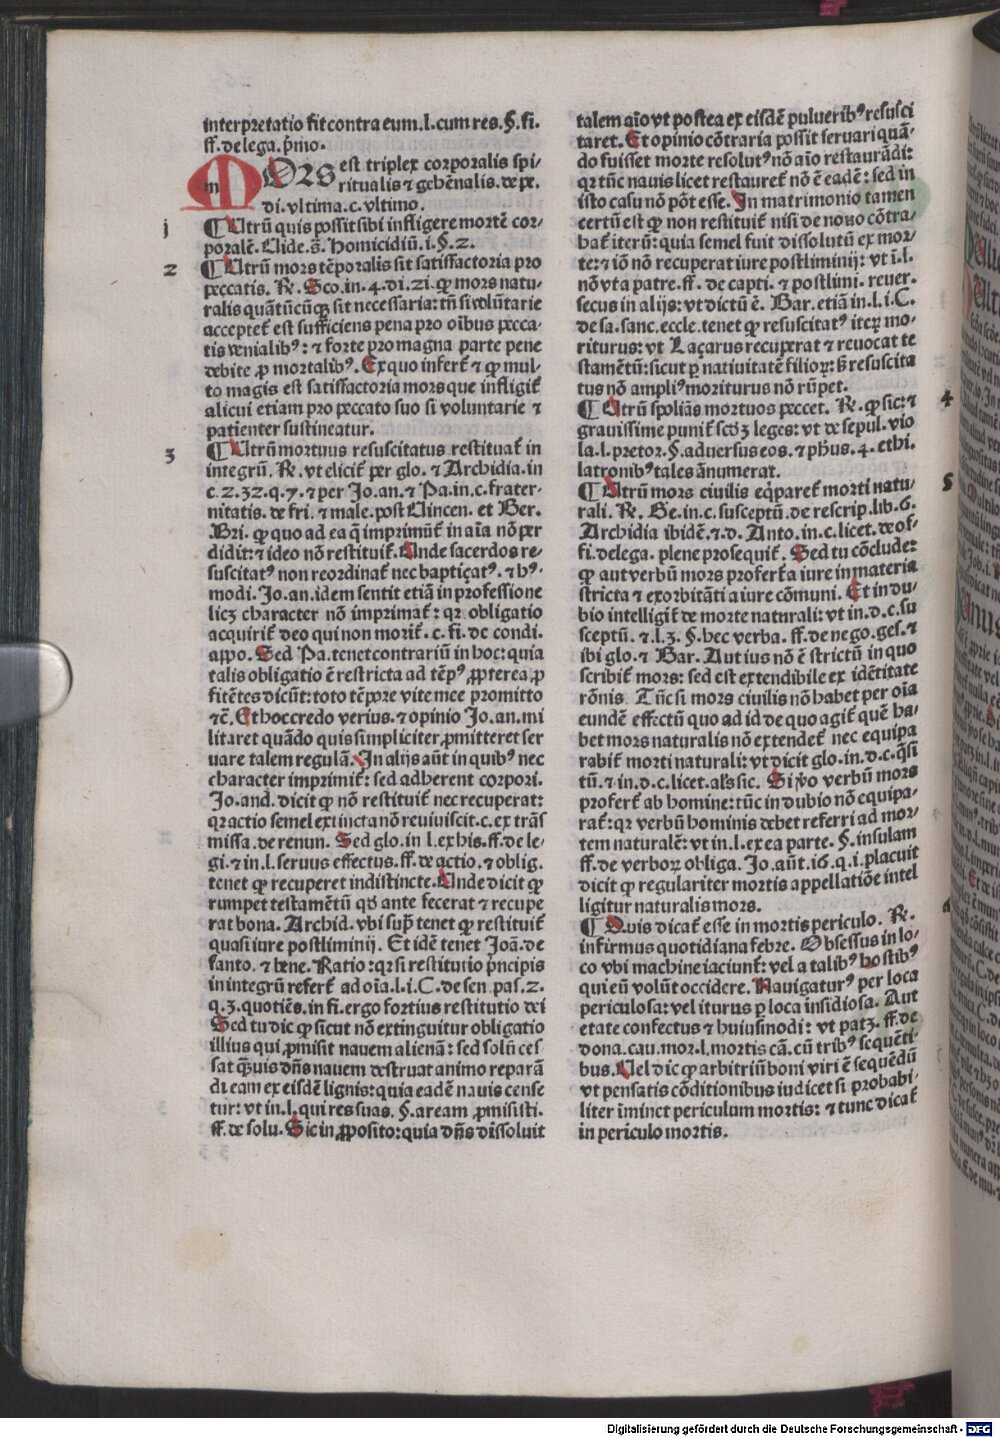 interpretatio fit contra eum.l.cum res.§.fi.
ff.de lega.pͥmo.
MORS est triplex corporalis spi-
ritualis ⁊ gehēnalis.de pe.
di.vltima.c.vltimo.
1 ¶ Utrū quis possit sibi infligere mortē cor-
poralē. Uide.s̄. Homicidiū.i.§.2.
2 ¶ Utrū mors tēporalis sit satisfactoria pro
peccatis. R̄e. Sco.in.4.di.2i.ꝙ mors natu-
ralis quātūcūqꝫ sit necessaria: tn̄ si volūtarie
acceptet̄ est sufficiens pena pro oībus pecca-
tis venialibꝰ: ⁊ forte pro magna parte pene
debite ꝓ mortalibꝰ. Ex quo infert̄ ⁊ ꝙ mul-
to magis est satisfactoria mors que infligit̄
alicui etiam pro peccato suo si voluntarie ⁊
patienter sustineatur.
3 ¶ Utrū mortuus resuscitatus restituat̄ in
integrū. R̄e. vt elicit̄ per glo. ⁊ Archidia.in
c.2.32.q.7.⁊ per Jo.an.⁊ Pa.in.c.frater-
nitatis.de fri.⁊ male.post Uincen. et Ber.
Bri. ꝙ quo ad ea q̄ imprimūt̄ in aīa nō per
didit: ⁊ ideo nō restituit̄. Unde sacerdos re-
suscitatꝰ non reordinat̄ nec baptiçatꝰ.⁊ hꝰ-
modi. Jo.an.idem sentit etiā in professione
licꝫ character nō imprimat̄: qꝛ obligatio
acquirit̄ deo qui non morit̄.c.fi.de condi.
appo. Sed Pa.tenet contrariū in hoc: quia
talis obligatio ē restricta ad tēpꝰ ꝓpterea ꝓ
fitētes dicūt: toto tēpore vite mee promitto
⁊cē. Et hoc credo verius.⁊ opinio Jo.an.mi
litaret quādo quis simpliciter ꝓmitteret ser
uare talem regulā. In alijs aūt in quibꝰ nec
character imprimit̄: sed adherent corpori.
Jo.and.dicit ꝙ nō restituit̄ nec recuperat:
qꝛ actio semel extincta nō reuiuiscit.c.ex trās
missa.de renun. Sed glo.in l.ex his.ff.de le-
gi.⁊ in l.seruus effectus.ff.de actio.⁊ oblig.
tenet ꝙ recuperet indistincte. Unde dicit ꝙ
rumpet testamētū qd̄ ante fecerat ⁊ recupe
rat bona. Archid.vbi supͣ tenet ꝙ restituit̄
quasi iure postliminij. Et idē tenet Joā.de
fanto.⁊ bene. Ratio: qꝛ si restitutio pͥncipis
in integrū refert̄ ad oīa.l.i.C.de sen pas.2.
q.3.quotiēs.in fi.ergo fortius restitutio dei
Sed tu dic ꝙ sicut nō extinguitur obligatio
illius qui ꝓmisit nauem alienā: sed solū ces
sat q̄uis dn̄s nauem destruat animo reparā
di eam ex eisdē lignis: quia eadē nauis cense
tur: vt in.l.qui res suas.§.aream ꝓmisisti.
ff.de solu. Sic in ꝓposito: quia dn̄s dissoluit
talem aīo vt postea ex eisdē puluerībꝰ resusci
taret. Et opinio cōtraria possit seruari quā-
do fuisset morte resolutꝰ nō aīo restaurādi:
qꝛ tūc nauis licet restauret̄ nō ē eadē: sed in
isto casu nō pōt esse. In matrimonio tamen
certū est ꝙ non restituit̄ nisi de nouo cōtra-
hat̄ iterū: quia semel fuit dissolutū ex mor-
te: ⁊ iō nō recuperat iure postliminij: vt ī.l.
nō vt a patre.ff.de capti.⁊ postlimi.reuer.
secus in alijs: vt dictū ē. Bar.etiā in.l.i.C.
de sa.sanc.eccle.tenet ꝙ resuscitatꝰ iteꝝ mo-
riturus: vt Laçarus recuperat ⁊ reuocat te
stamētū: sicut ꝑ natiuitatē filioꝝ: s̄ resuscita
tus nō ampliꝰ moriturus nō rūpet.
4 ¶ Utrū spoliās mortuos peccet. R̄e. ꝙ sic: ⁊
grauissime punit̄ scd̄ꝫ leges: vt de sepul.vio
la.l.pretor.§.aduersus eos.⁊ ph̄us.4.ethi.
latronibꝰ tales ānumerat.
5 ¶ Utrū mors ciuilis eq̄paret̄ morti natu-
rali. R̄e. Ge.in.c.susceptū.de rescrip.lib.6.
Archidia ibidē.⁊.d.Anto.in.c.licet.de of-
fi.delega.plene prosequit̄. Sed tu cōclude:
ꝙ aut verbū mors profert̄ a iure in materia
stricta ⁊ exorbitāti a iure cōmuni. Et in du-
bio intelligit̄ de morte naturali: vt in.d.c.su
sceptū.⁊.l.3.§.hec verba.ff.de nego.ges.⁊
ibi glo.⁊ Bar. Aut ius nō ē strictū in quo
scribit̄ mors: sed est extendibile ex idētitate
rōnis. Tūc si mors ciuilis nō habet per oīa
eundē effectū quo ad id de quo agit̄ quē ha-
bet mors naturalis nō extendet̄ nec equipa
rabit̄ morti naturali: vt dicit glo.in.d.c.q̄si
tū.⁊ in.d.c.licet.als̄ sic. Si v̄o verbū mors
profert̄ ab homine: tūc in dubio nō equipa-
rat̄: qꝛ verbū hominis debet referri ad mor-
tem naturalē: vt in.l.ex ea parte.§.insulam
ff.de verboꝝ obliga. Jo.aūt.i6.q.i.placuit
dicit ꝙ regulariter mortis appellatiōe intel
ligitur naturalis mors.
¶ Quis dicat̄ esse in mortis periculo. R̄e.
infirmus quotidiana febre. Obsessus in lo-
co vbi machine iaciunt̄: vel a talibꝰ hostibꝰ
qui eū volūt occidere. Nauigaturꝰ per loca
periculosa: vel iturus ꝑ loca insidiosa. Aut
etate confectus ⁊ huiusmodi: vt patꝫ.ff.de
dona.cau.mor.l.mortis cā.cū tribꝰ sequēti-
bus. Uel dic ꝙ arbitriū boni viri ē sequēdū
vt pensatis cōditionibus iudicet si probabi-
liter īminet periculum mortis: ⁊ tunc dicat̄
in periculo mortis.
Digitalisierung gefördert durch die Deutsche Forschungsgemeinschaft - DFG